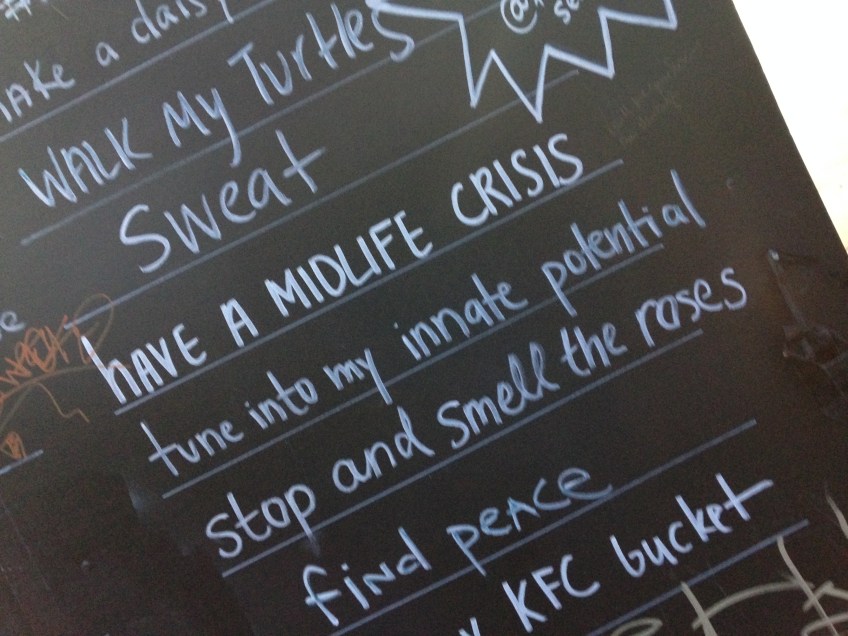 make a daisy
WALK My Turtles
Sweat
HAVE A MIDLIFE CRISIS
tune into my innate potential
stop and smell the roses
find peace
KFC bucket